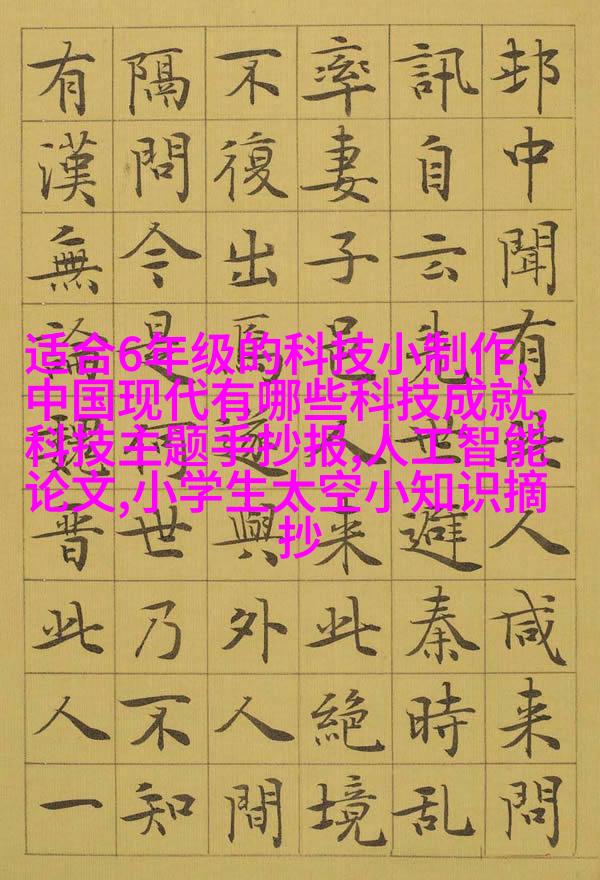 适合6年级的科技小制作,
中国现代有哪些科技成就,
科技主题手抄报,人工智能
论文,小学生太空小知识摘
抄
邨中聞有人咸来問
訊自云先世避秦時乱
率妻子邑来此絶境
不復出焉遂與外人間
隔問今是何世乃不知
有漢無論魏晋此人一